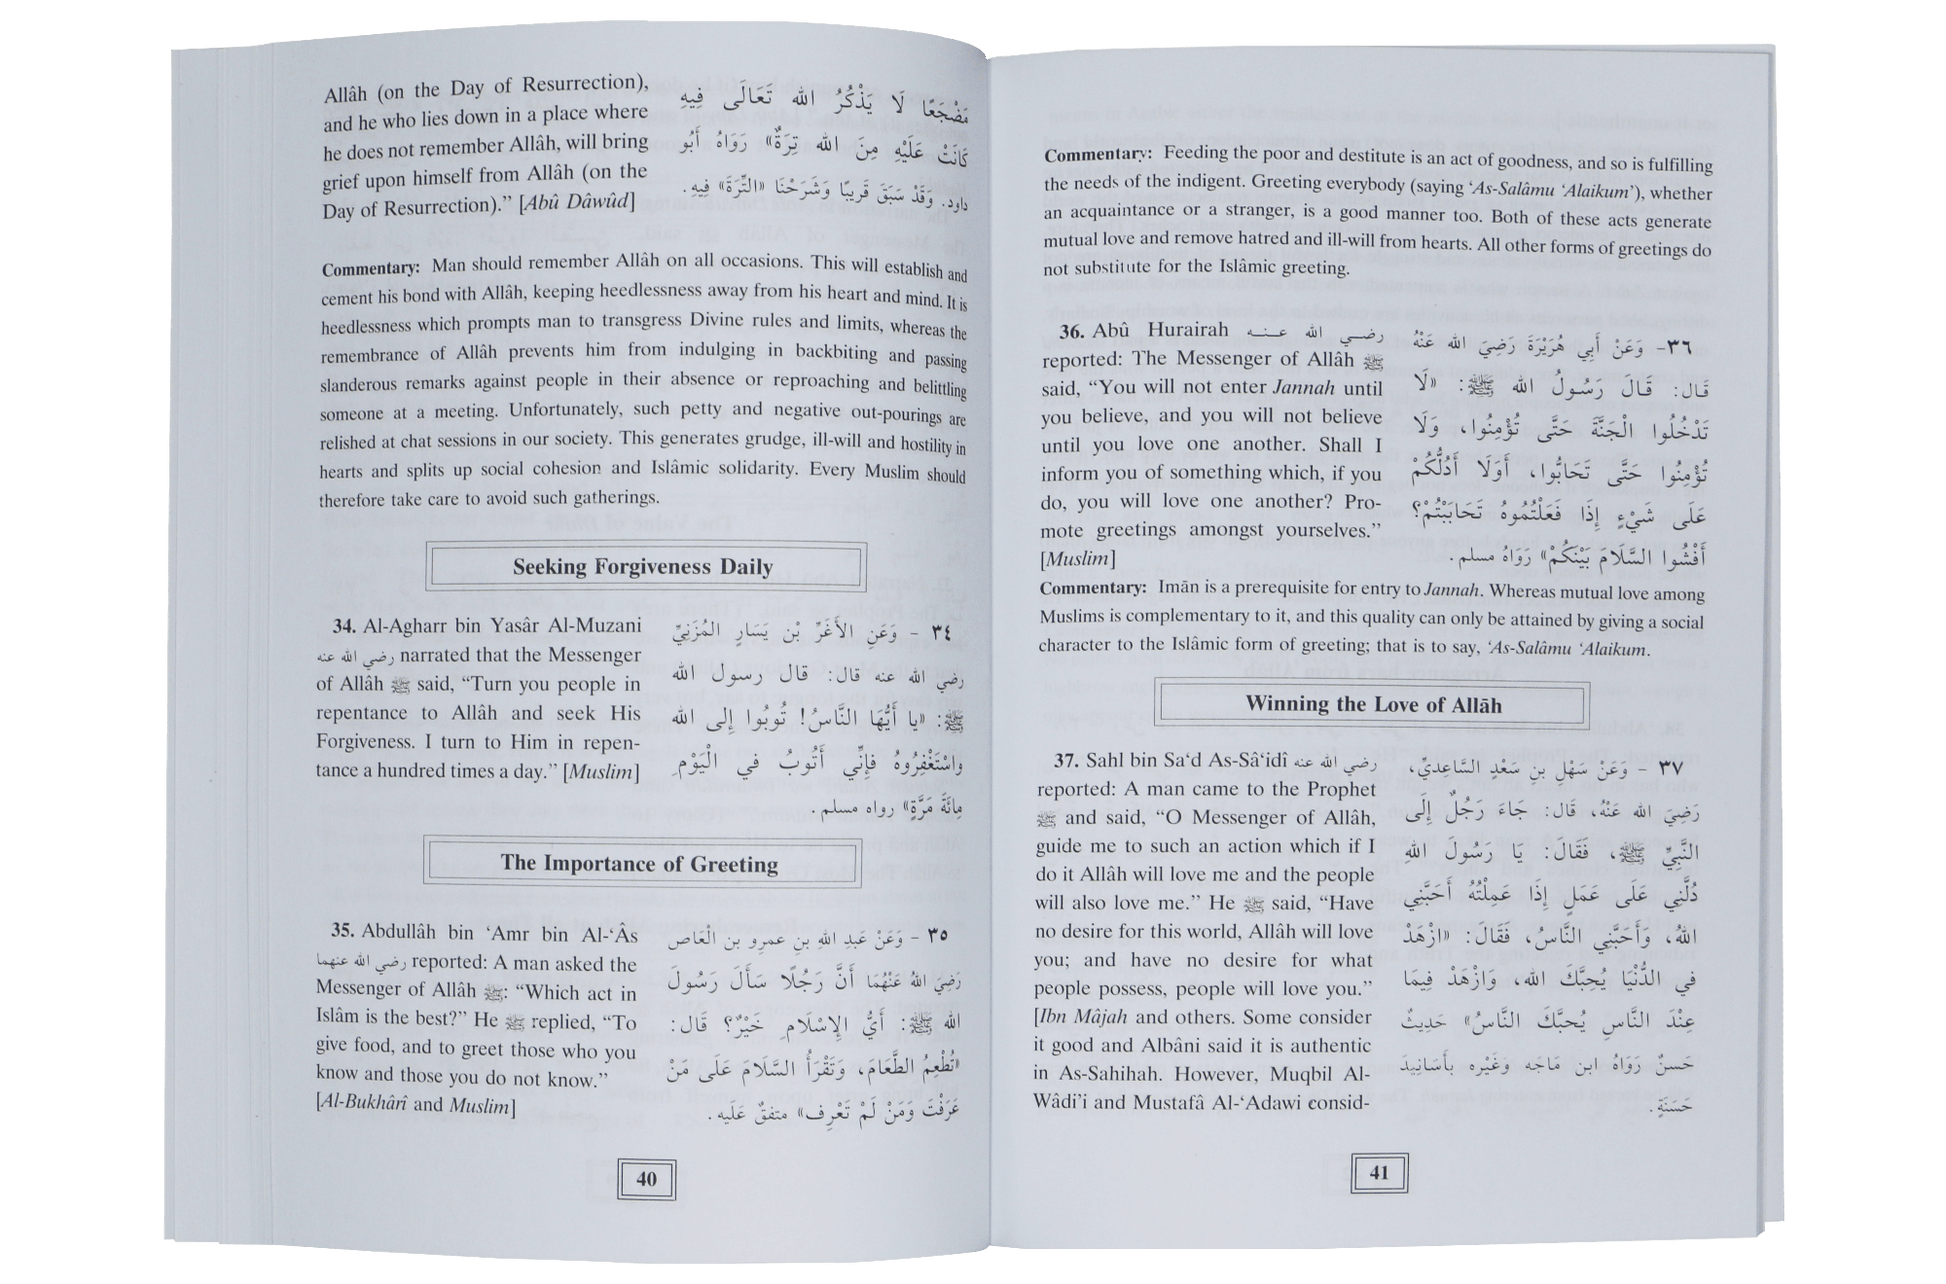 Allâh (on the Day of Resurrection),
and he who lies down in a place where
he does not remember Allâh, will bring
grief upon himself from Allâh (on the
Day of Resurrection).” [Abû Dâwûd]
مَضْجَعًا لَا يَذْكُرُ الله تَعَالَى فِيهِ
كَانَتْ عَلَيْهِ مِنَ الله تِرَةٌ» رَوَاهُ أَبُو
داود. وَقَدْ سَبَقَ قَرِيبًا وَشَرَحْنَا «التِّرَةَ» فِيهِ.
Commentary: Man should remember Allâh on all occasions. This will establish and
cement his bond with Allâh, keeping heedlessness away from his heart and mind. It is
heedlessness which prompts man to transgress Divine rules and limits, whereas the
remembrance of Allâh prevents him from indulging in backbiting and passing
slanderous remarks against people in their absence or reproaching and belittling
someone at a meeting. Unfortunately, such petty and negative out-pourings are
relished at chat sessions in our society. This generates grudge, ill-will and hostility in
hearts and splits up social cohesion and Islâmic solidarity. Every Muslim should
therefore take care to avoid such gatherings.
Seeking Forgiveness Daily
34. Al-Agharr bin Yasâr Al-Muzani
رضي الله عنه narrated that the Messenger
of Allâh ﷺ said, “Turn you people in
repentance to Allâh and seek His
Forgiveness. I turn to Him in repen-
tance a hundred times a day.” [Muslim]
٣٤ - وَعَنِ الأَغَرِّ بْن يَسَارٍ المُزَنِيِّ
رضي الله عنه قال: قال رسول الله
ﷺ: «يا أَيُّهَا النَّاسُ! تُوبُوا إِلى الله
واسْتَغْفِرُوهُ فإِنِّي أَتُوبُ في الْيَوْمِ
مِائَةَ مَرَّةٍ» رواه مسلم.
The Importance of Greeting
35. Abdullâh bin ‘Amr bin Al-‘Âs
رضي الله عنهما reported: A man asked the
Messenger of Allâh ﷺ: “Which act in
Islâm is the best?” He ﷺ replied, “To
give food, and to greet those who you
know and those you do not know.”
[Al-Bukhârî and Muslim]
٣٥ - وَعَنْ عَبدِ اللهِ بنِ عمرِو بن الْعَاص
رَضِيَ اللهُ عَنْهُمَا أَنَّ رَجُلًا سَأَلَ رَسُولَ
الله ﷺ: أَيُّ الإِسْلَامِ خَيْرٌ؟ قَال:
«تُطْعِمُ الطَّعَامَ، وَتَقْرَأُ السَّلَامَ عَلَى مَنْ
عَرَفْتَ وَمَنْ لَمْ تَعْرِف» متفقٌ عَلَيه.
40
Commentary: Feeding the poor and destitute is an act of goodness, and so is fulfilling
the needs of the indigent. Greeting everybody (saying ‘As-Salâmu ‘Alaikum’), whether
an acquaintance or a stranger, is a good manner too. Both of these acts generate
mutual love and remove hatred and ill-will from hearts. All other forms of greetings do
not substitute for the Islâmic greeting.
36. Abû Hurairah رضي الله عنه
reported: The Messenger of Allâh ﷺ
said, “You will not enter Jannah until
you believe, and you will not believe
until you love one another. Shall I
inform you of something which, if you
do, you will love one another? Pro-
mote greetings amongst yourselves.”
[Muslim]
٣٦- وَعَنْ أَبِي هُرَيْرَةَ رَضِيَ الله عَنْهُ
قَال: قَالَ رَسُولُ الله ﷺ: «لَا
تَدْخُلُوا الْجَنَّةَ حَتَّى تُؤْمِنُوا، وَلَا
تُؤْمِنُوا حَتَّى تَحَابُّوا، أَوَلَا أَدُلُّكُمْ
عَلَى شَيْءٍ إِذَا فَعَلْتُمُوهُ تَحَابَبْتُمْ؟
أَفْشُوا السَّلَامَ بَيْنَكُمْ» رَوَاهُ مسلم.
Commentary: Imān is a prerequisite for entry to Jannah. Whereas mutual love among
Muslims is complementary to it, and this quality can only be attained by giving a social
character to the Islâmic form of greeting; that is to say, ‘As-Salâmu ‘Alaikum.
Winning the Love of Allāh
37. Sahl bin Sa‘d As-Sâ‘idî رضي الله عنه
reported: A man came to the Prophet
ﷺ and said, “O Messenger of Allâh,
guide me to such an action which if I
do it Allâh will love me and the people
will also love me.” He ﷺ said, “Have
no desire for this world, Allâh will love
you; and have no desire for what
people possess, people will love you.”
[Ibn Mâjah and others. Some consider
it good and Albâni said it is authentic
in As-Sahihah. However, Muqbil Al-
Wâdi’i and Mustafâ Al-‘Adawi consid-
٣٧ - وَعَنْ سَهْلِ بنِ سَعْدٍ السَّاعِدِيِّ،
رَضِيَ الله عَنْهُ، قَال: جَاءَ رَجُلٌ إِلَى
النَّبِيِّ ﷺ، فَقَالَ: يَا رَسُولَ اللهِ
دُلَّنِي عَلَى عَمَلٍ إِذَا عَمِلْتُهُ أَحَبَّنِي
اللهُ، وَأَحَبَّنِي النَّاسُ، فَقَالَ: «ازْهَدْ
في الدُّنْيَا يُحِبَّكَ الله، وَازْهَدْ فِيمَا
عِنْدَ النَّاسِ يُحبَّكَ النَّاسُ» حَدِيثٌ
حَسنٌ رَوَاهُ ابن مَاجَه وغَيْره بأَسَانِيدَ
حَسَنَةٍ.
41